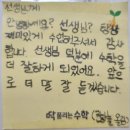 선생님께
안녕하세요? 선생님? 항상
재미있게 수업해주셔서 감사
합니다 선생님 덕분에 수학을
더 잘하게 되었어요. 앞으
로 더 열 심히 듣겠습니다.
수학